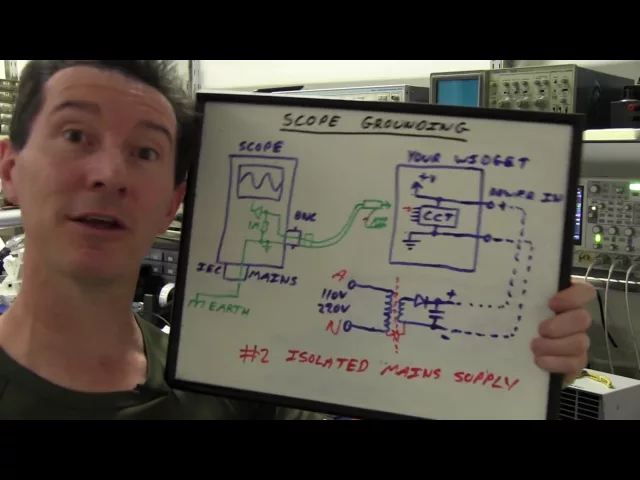 SCOPE GROUNDING
SCOPE
YOUR WIDGET
+V
POWER IN
+
CCT
BNC
1M
IEC
MAINS
EARTH
A
110V
220V
N
+
-
#2 ISOLATED MAINS SUPPLY